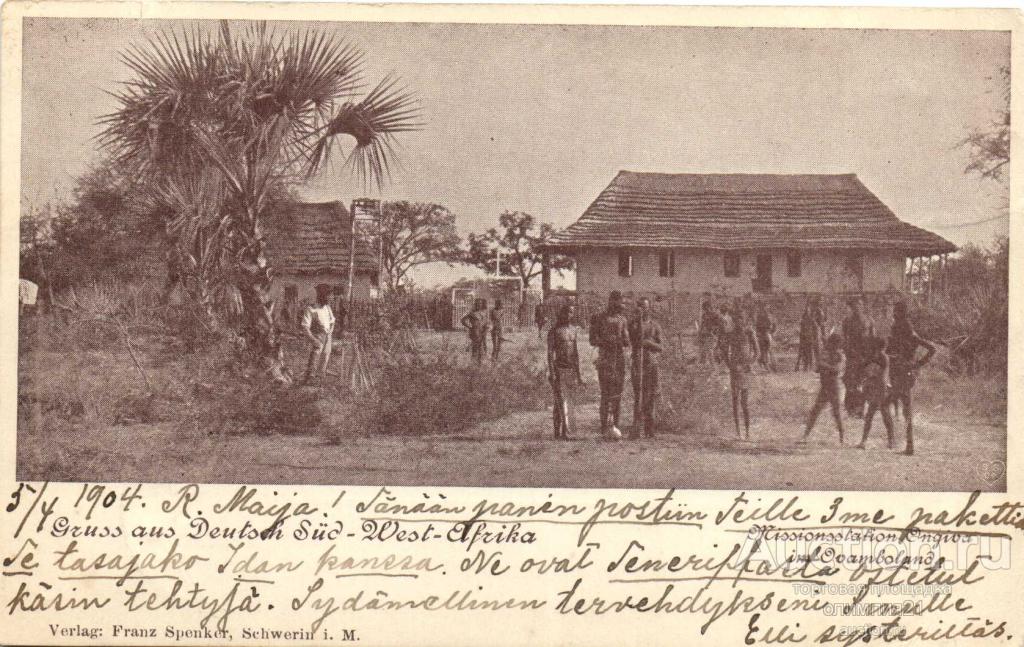 5/4 1904. R. Maija! Tänään panen postiin Teille 3me pakettia
Gruss aus Deutsch Süd-West-Afrika
Missionsstation Ongiva
im Ovamboland
Te tasajako Idan kanssa. Ne ovat Teneriffarta
käsin tehtyjä. Sydämellinen tervehdykseni
Elli systeriltäs.
Verlag: Franz Spenker, Schwerin i. M.
Auction.ru
торговая площадка
олимпа21
auction.ru